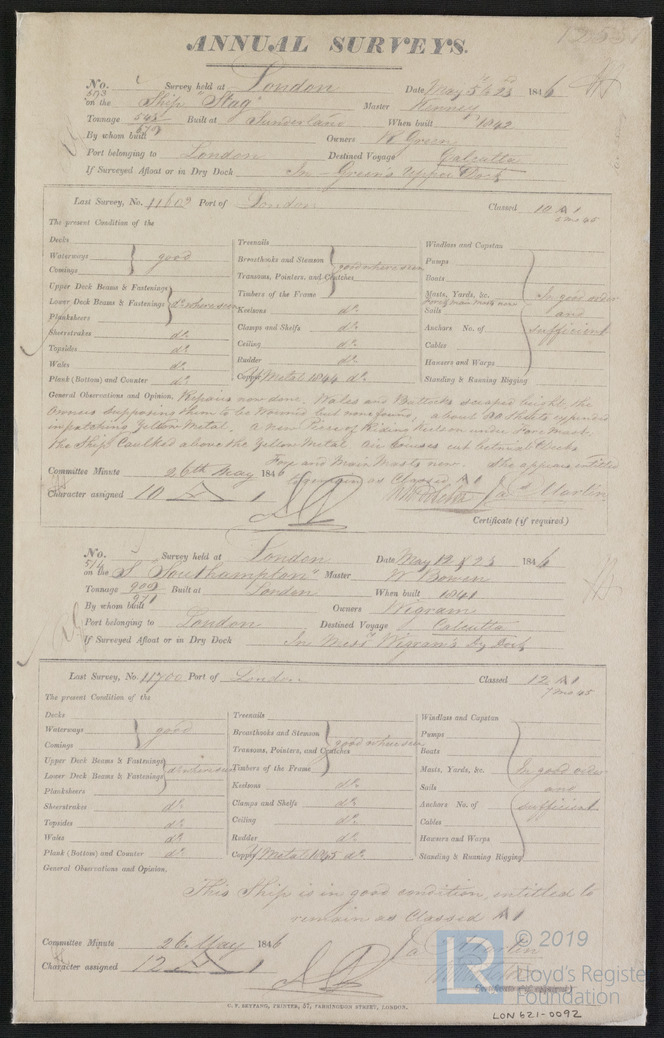 ANNUAL SURVEYS.
No. Survey held at London Date May 5 & 23 1846
573
on the Ship "Stag" Master Kinney
Tonnage 543 Built at Sunderland When built 1842
679
By whom built Owners R Green
Port belonging to London Destined Voyage Calcutta
If Surveyed Afloat or in Dry Dock In Green's Upper Dock
Last Survey, No. 11602 Port of London Classed 10 A 1
45
The present Condition of the
Decks
Waterways
Comings
good
Upper Deck Beams & Fastenings
Lower Deck Beams & Fastenings
Plansheers
do where seen
Sheerstrakes do
Topsides do
Wales do
Plank (Bottom) and Counter do
Treenails
Breasthooks and Stemson
Transoms, Pointers, and Crutches
Timbers of the Frame
good where seen
Keelsons do
Clamps and Shelfs do
Ceiling do
Rudder do
Copper Y Metal 1844 do
Windlass and Capstan
Pumps
Boats
Masts, Yards, &c.
Fore & main Masts new
Sails
Anchors No. of
Cables
Hawsers and Warps
Standing & Running Rigging
In good order
and
sufficient
General Observations and Opinion, Repairs now done. Wales and Buttocks scraped bright, the
Owners supposing them to be wormed but none found, about 20 Sheets expended
in patching Yellow Metal. A new Piece of Riding Keelson under Fore Mast,
the Ship Caulked above the Yellow Metal. Air Courses cut between Decks
Fore and Main Masts new. She appears entitled
Committee Minute 26th May 1846
to remain as Classed A 1
Character assigned 10 A 1
Jas Martin
Certificate (if required)
No. Survey held at London Date May 19 & 23 1846
574
on the S "Southampton" Master W Bowen
Tonnage 909 Built at London When built 1841
971
By whom built Owners Wigram
Port belonging to London Destined Voyage Calcutta
If Surveyed Afloat or in Dry Dock In Messrs Wigram's Dry Dock
Last Survey, No. 11700 Port of London Classed 12 A 1
7 mo 45
The present Condition of the
Decks
Waterways
Comings
good
Upper Deck Beams & Fastenings
Lower Deck Beams & Fastenings
do where seen
Plansheers
Sheerstrakes do
Topsides do
Wales do
Plank (Bottom) and Counter do
Treenails
Breasthooks and Stemson
Transoms, Pointers, and Crutches
Timbers of the Frame
good where seen
Keelsons do
Clamps and Shelfs do
Ceiling do
Rudder do
Copper Y Metal 1845 do
Windlass and Capstan
Pumps
Boats
Masts, Yards, &c.
Sails
Anchors No. of
Cables
Hawsers and Warps
Standing & Running Rigging
In good order
and
sufficient
General Observations and Opinion,
This Ship is in good condition, entitled to
remain as Classed A 1
Committee Minute 26 May 1846
Jas Martin
Character assigned 12 A 1
Certificate (if required)
C. F. SEYFANG, PRINTER, 57, FARRINGDON STREET, LONDON.
LR
© 2019
Lloyd's Register
Foundation
LON 621-0092